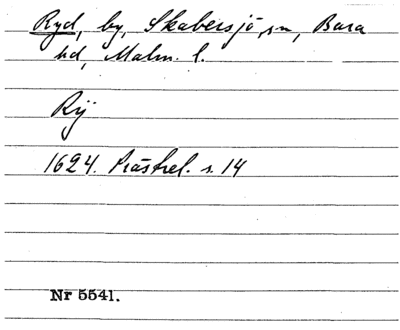 Ryd, by, Skabersjö sn, Bara
hd, Malm. l.
Rÿ
1624. Prästrel. s. 14
Nr 5541.